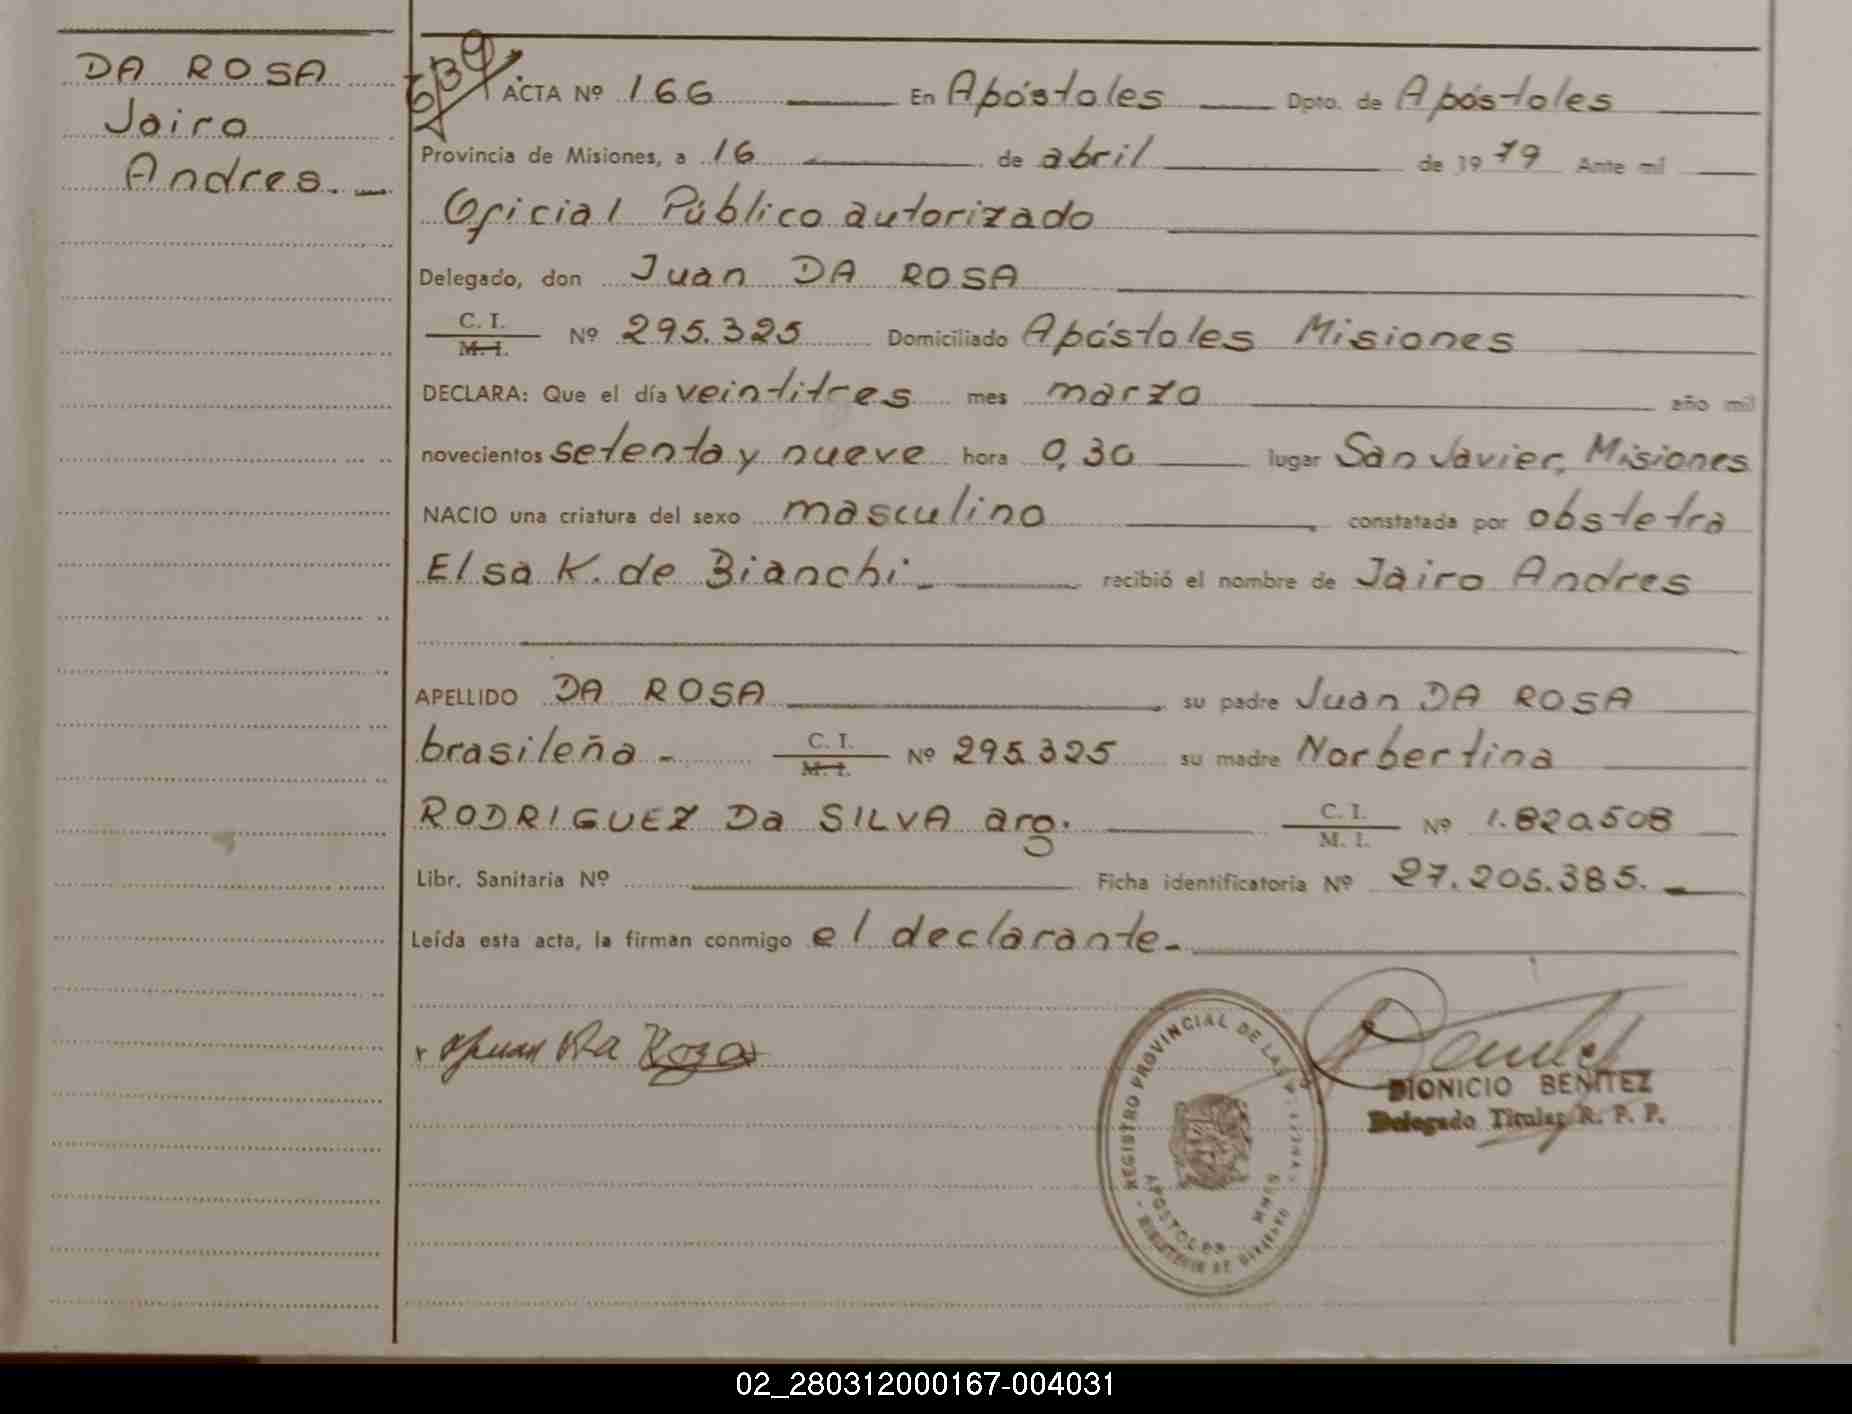 DA ROSA
Jairo
Andres. _
639
ACTA Nº 166 En Apóstoles Dpto. de Apóstoles
Provincia de Misiones, a 16 de abril de 1979 Ante mí
Oficial Público autorizado
Delegado, don Juan DA ROSA
C. I.
M. I. Nº 295.325 Domiciliado Apóstoles Misiones
DECLARA: Que el día veintitres mes marzo año mil
novecientos setenta y nueve hora 0,30 lugar San Javier, Misiones
NACIO una criatura del sexo masculino constatada por obstetra
Elsa K. de Bianchi._ recibió el nombre de Jairo Andres
APELLIDO DA ROSA su padre Juan DA ROSA
brasileña -. C. I.
M. I. Nº 295.325 su madre Norbertina
RODRIGUEZ Da SILVA arg. C. I.
M. I. Nº 1.820.508
Libr. Sanitaria Nº Ficha identificatoria Nº 27.205.385._
Leída esta acta, la firman conmigo el declarante._
Juan Da Roza
REGISTRO PROVINCIAL DE LAS PERSONAS
APOSTOLES MNES
MINISTERIO DE GOBIERNO
DIONICIO BENITEZ
Delegado Titular R. P. P.
02_280312000167-004031